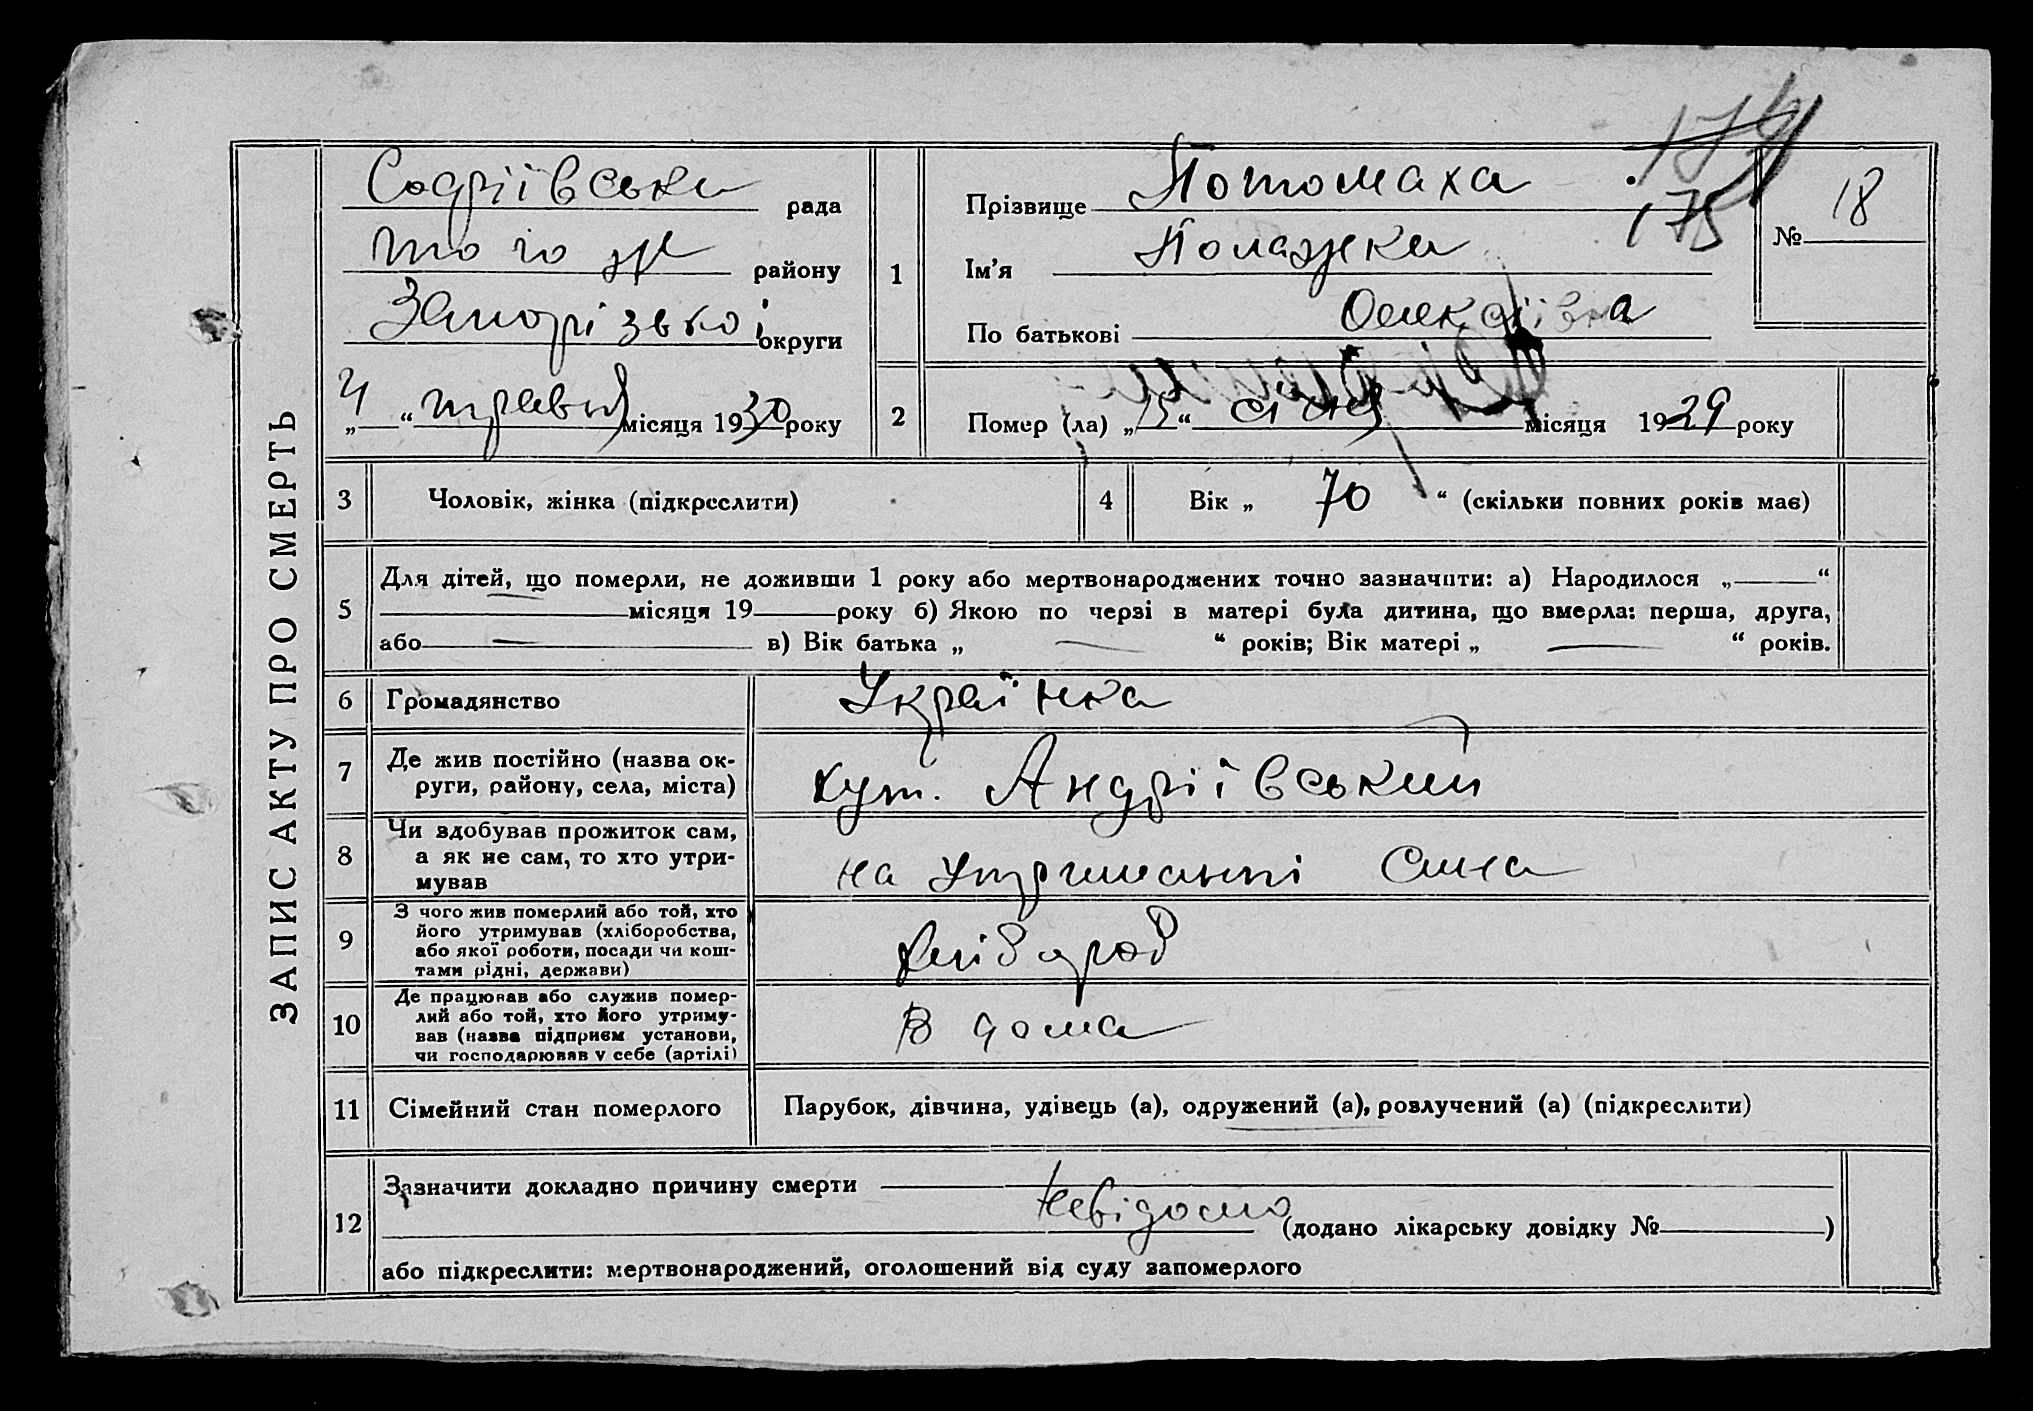 ЗАПИС АКТУ ПРО СМЕРТЬ
174
175
Софіївська рада
того ж району
Запорізької округи
„4“ травня місяця 1930 року
1
Прізвище Потомаха
Ім’я Полажка
По батькові Олексіївна
№ 18
2
Помер (ла) „15“ січня місяця 1929 року
3
Чоловік, жінка (підкреслити)
4
Вік „ 70 “ (скільки повних років має)
5
Для дітей, що померли, не доживши 1 року або мертвонароджених точно зазначити: а) Народилося „——“
місяця 19 року б) Якою по черзі в матері була дитина, що вмерла: перша, друга,
або — в) Вік батька „ — “ років; Вік матері „ — “ років.
6
Громадянство
Українка
7
Де жив постійно (назва ок-
руги, району, села, міста)
хут. Андріївський
8
Чи здобував прожиток сам,
а як не сам, то хто утри-
мував
на утриманні сина
9
З чого жив померлий або той, хто
його утримував (хліборобства,
або якої роботи, посади чи кош-
тами рідні, держави)
хлібороб
10
Де працював або служив помер-
лий або той, хто його утриму-
вав (назва підприєм установи,
чи господарював у себе (артілі)
В дома
11
Сімейний стан померлого
Парубок, дівчина, удівець (а), одружений (а), розлучений (а) (підкреслити)
12
Зазначити докладно причину смерти
невідомо (додано лікарську довідку № )
або підкреслити: мертвонароджений, оголошений від суду запомерлого